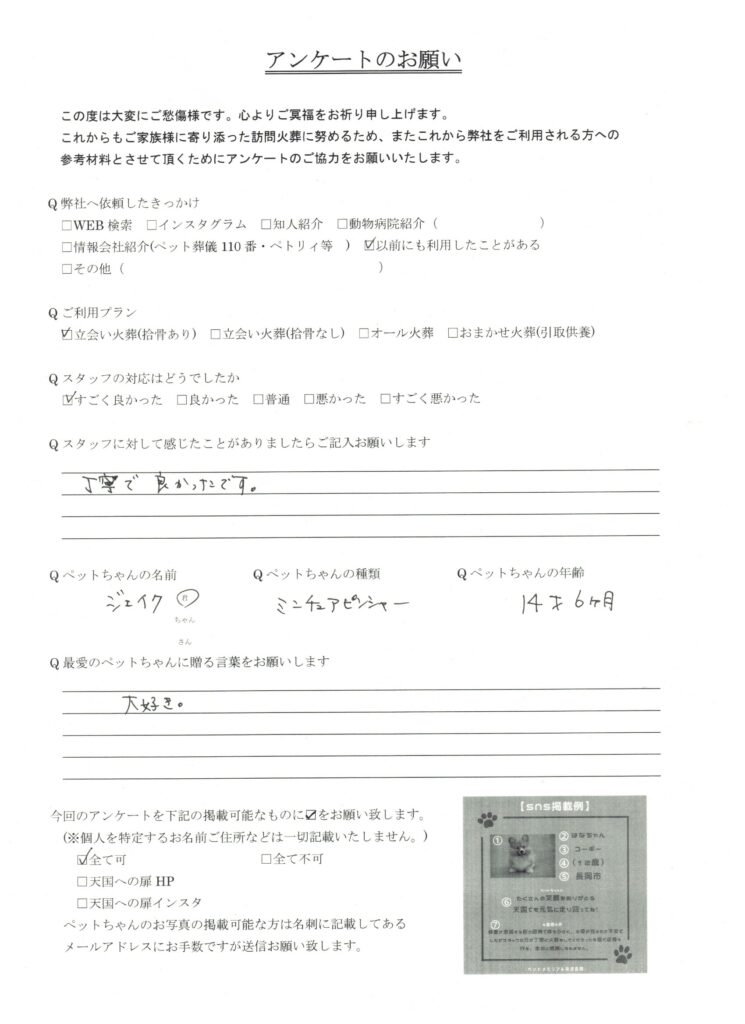 アンケートのお願い
この度は大変にご愁傷様です。心よりご冥福をお祈り申し上げます。
これからもご家族様に寄り添った訪問火葬に努めるため、またこれから弊社をご利用される方への
参考材料とさせて頂くためにアンケートのご協力をお願いいたします。
Q 弊社へ依頼したきっかけ
□WEB 検索 □インスタグラム □知人紹介 □動物病院紹介（ ）
□情報会社紹介(ペット葬儀 110 番・ペトリィ等 ) ☑以前にも利用したことがある
□その他（ ）
Q ご利用プラン
☑立会い火葬(拾骨あり) □立会い火葬(拾骨なし) □オール火葬 □おまかせ火葬(引取供養)
Q スタッフの対応はどうでしたか
☑すごく良かった □良かった □普通 □悪かった □すごく悪かった
Q スタッフに対して感じたことがありましたらご記入お願いします
丁寧で 良かったです。
Q ペットちゃんの名前 Q ペットちゃんの種類 Q ペットちゃんの年齢
ジェイク 君 ミニチュアピンシャー 14才6ヶ月
ちゃん
さん
Q 最愛のペットちゃんに贈る言葉をお願いします
大好き。
今回のアンケートを下記の掲載可能なものに☑をお願い致します。
(※個人を特定するお名前ご住所などは一切記載いたしません。)
☑全て可 □全て不可
□天国への扉 HP
□天国への扉インスタ
ペットちゃんのお写真の掲載可能な方は名刺に記載してある
メールアドレスにお手数ですが送信お願い致します。
【sns掲載例】
① ② はなちゃん
③ コーギー
④ (12歳)
⑤ 長岡市
⑥ たくさんの笑顔をありがとう
天国でも元気に走り回ってね!
⑦